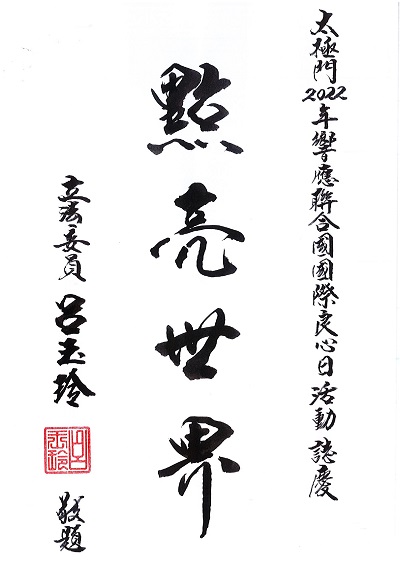 太極門2022年響應聯合國國際良心日活動誌慶
點亮世界
立法委員呂玉玲
呂玉玲
敬題